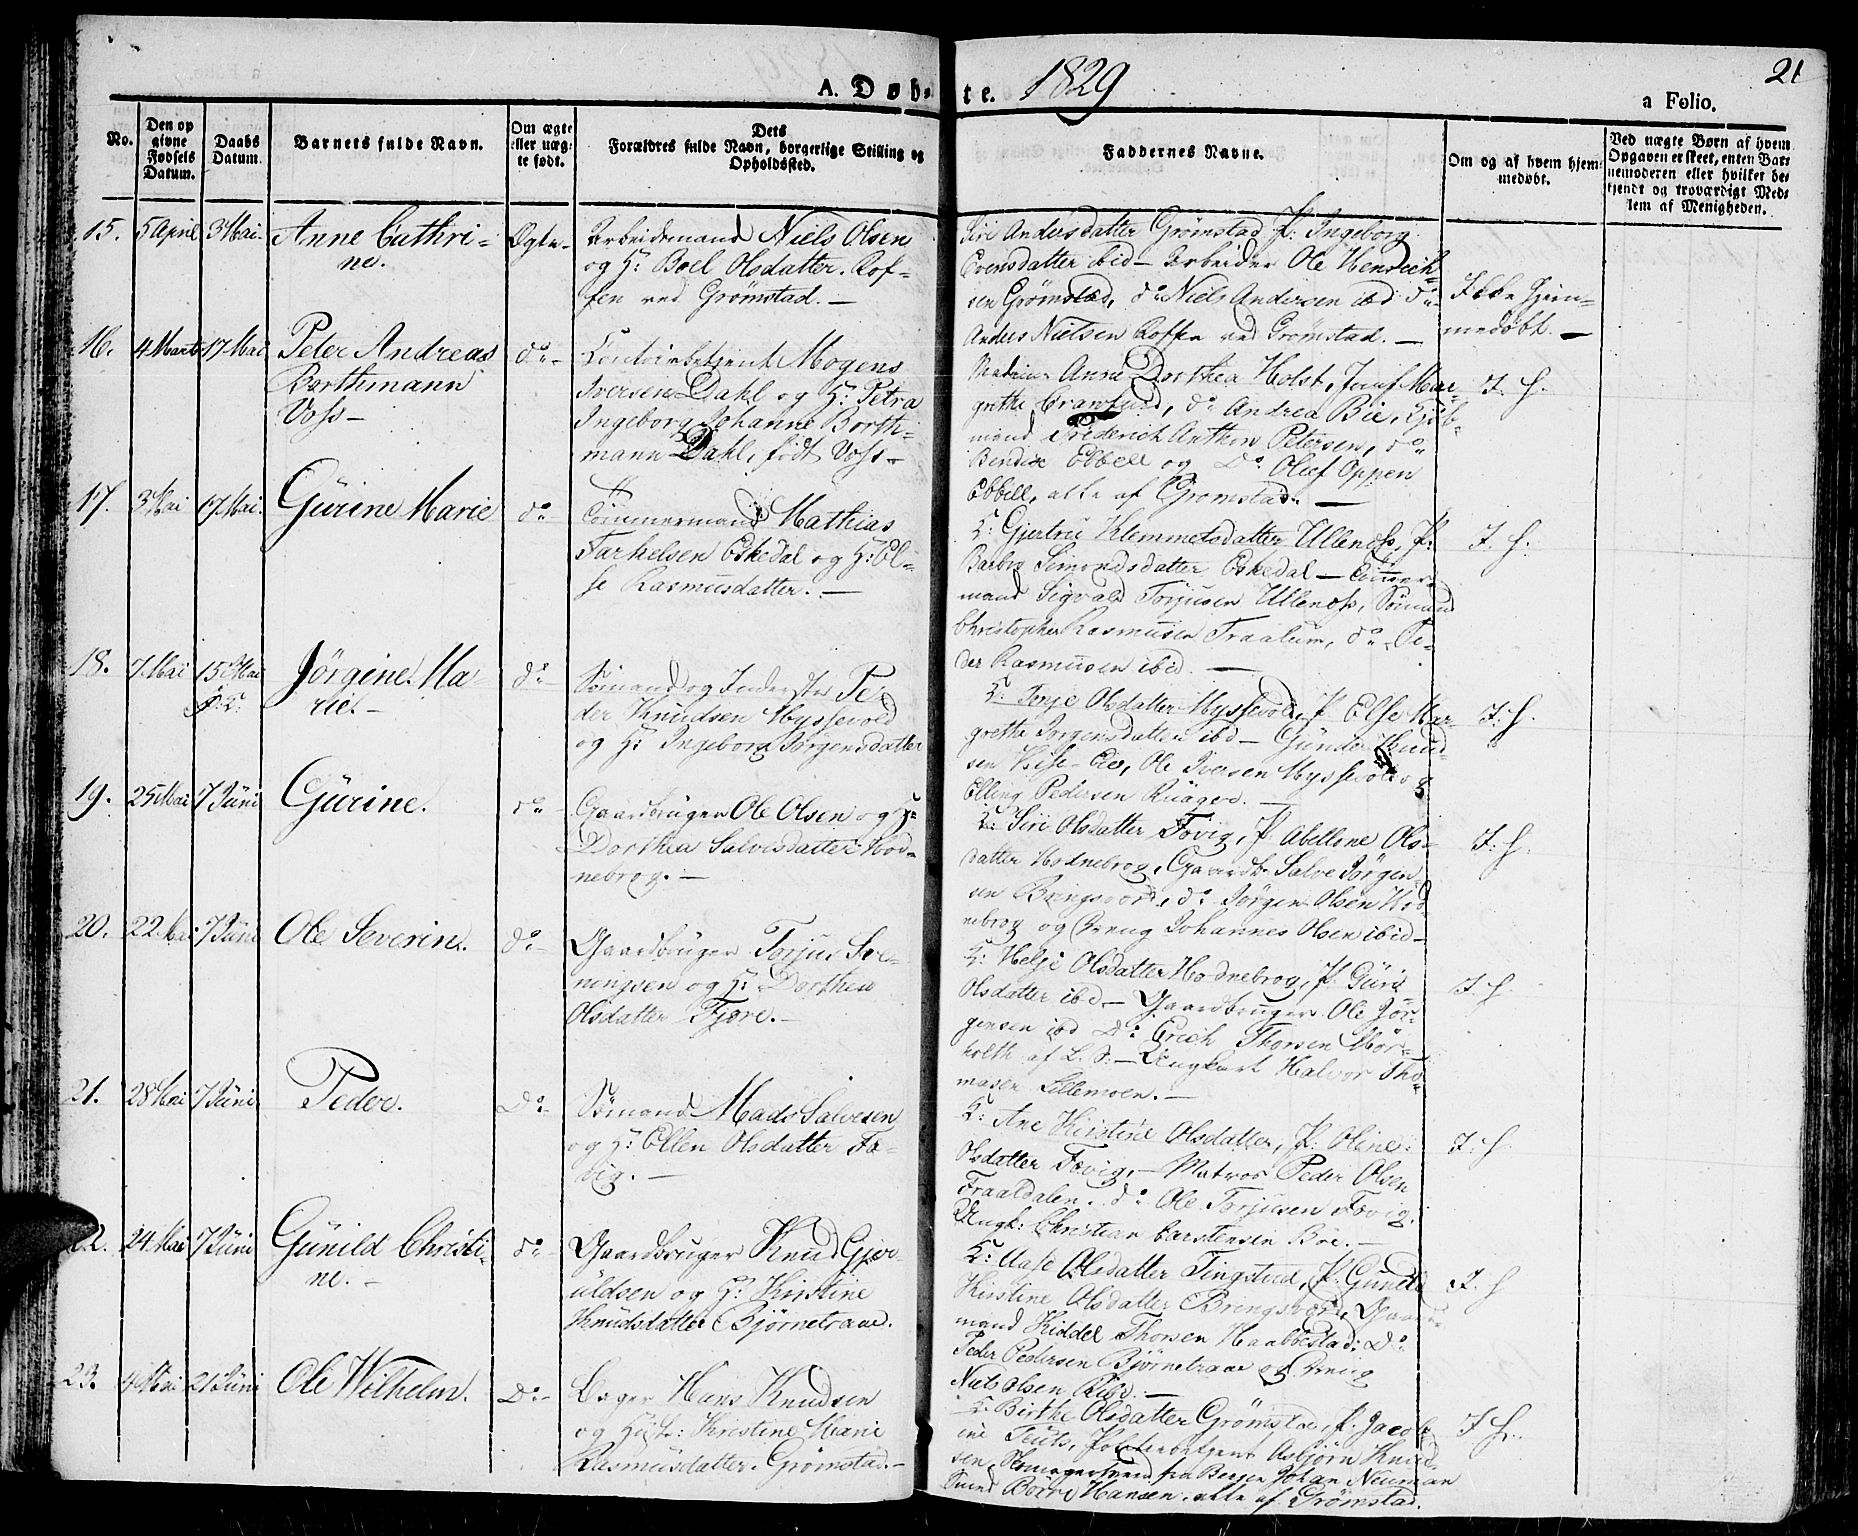 21
A. Døb-te. 1829
a Folio.
No.
Den op
givne
Fødsels
Datum.
Daabs
Datum.
Barnets fulde Navn.
Om ægte
eller uæg-
te født.
Dets
Forældres fulde Navn, borgerlige Stilling og
Opholdssted.
Faddernes Navne.
Om og af hvem hjem-
medøbt.
Ved uægte Børn af hvem
Opgaven er skeet, enten Bar
nemoderen eller hvilket be-
kjendt og troværdigt Med-
lem af Menigheden.
15. 5 April 3 Mai. Anne Cathri-
ne.
Ægte
Arbeidsmand Niels Olsen
og H: Boel Olsdatter. Rof-
fen ved Grømstad. —
Siri Andersdatter Grømstad P: Ingeborg
Evensdatter ibid — Arbeider Ole Hendrich
sen Grømstad, do Niels Andersen ibd do
Anders Nielsen Roffen ved Grømstad. —
Ikke Hjem-
medøbt. —
16. 4 Marts 17 Mai Peter Andreas
Borthmann
Voss —
do —
Contoirbetjent Mogens
Iversen Dahl og H: Petra
Ingeborg Johanne Borth-
mann Dahl, født Voss —
Madme Anne Dorthea Holst, Jomf Mar-
grethe Crawfurd, do Andrea Bie, Kjøb-
mand Friderich Anthon Petersen, do
Bendix Ebbell og Do Oluf Oppen
Ebbell, alle af Grømstad. —
I. H.
17. 3 Mai 17 Mai. Gurine Marie
do —
Tømmermand Mathias
Tarkelsen Eskedal og H: El-
se Rasmusdatter. —
K: Gjertrue Klemmetsdatter Ullenes, P:
Barbro Simondsdatter Eskedal — Tømmer-
mand Sigvald Torjusen Ullenes, Sømand
Christopher Rasmusen Traalum, do Pe-
der Rasmusen ibid. —
I. H.
18. 7 Mai 15 Mai Jörgine Ma
rie. —
do —
Sømand og Inderste Pe-
der Knudsen Hyssevold
og H: Ingeborg Jørgensdatter
K: Olsdatter Hyssevold, P Else Mar
grethe Jørgensdatter ibd — Gunder Knud-
sen, Ole Iversen Hyssevold og
Elling Pedersen. —
I. H.
19. 25 Mai 7 Juni Gurine.
do
Gaardbruger Ole Olsen og H:
Dorthea Salvesdatter Hod-
nebrog. —
K: Siri Olsdatter Føvig, P Abellone Ols-
datter Hodnebrog, Gaardb. Salve Jørgen-
sen Bringsvord, do Jørgen Olsen Hod
nebrog og Dreng Johannes Olsen ibid —
I. H.
20. 22 Mai 7 Juni Ole Severin.
do —
Gaardbruger Torjus Sø-
ningsen og H: Dorthea
Olsdatter Fjære. —
K: Helje Olsdatter Hodnebrog, P: Guri
Olsdatter ibd — Gaardbruger Ole Jør-
gensen ibd Do Erich Thorsen Mør-
holth af L. S: — Ungkarl Halvor Tho-
masen Lillemoen. —
I. H.
21. 28 Mai 7 Juni Peder.
Do —
Sømand Mads Salvesen
og H: Ellen Olsdatter Fæ-
vig. —
K: Ane Kirstine Olsdatter, P: Oline
Olsdatter Fævig, — Matros Peder Olsen
Fraaldalen. do Ole Torjusen Fævig.
Ungk: Christian Carstensen Bøe. —
I. H.
22. 24 Mai 7 Juni Gunild Christi-
ne. —
do —
Gaardbruger Knud Gjer-
uldsen og H: Kirstine
Knudsdatter Bjørnetraae.
K: Aase Olsdatter Tingstved, P: Gunild
Kirstine Olsdatter Bringsvord, Gaard-
mand Kiddel Thorsen Haabbestad: Do
Peder Pedersen Bjørnetraae og Dreng
Niels Olsen Ribe. —
I. H
23. 4 Mai 21 Juni Ole Wilhelm.
Do —
Bager Hans Knudsen
og H: Kristine Marie
Rasmusdatter. Grømstad. —
K. Birthe Olsdatter Grømstad, P. Jacob-
ine Teuts, Politiebetjent Asbjørn Knud-
sen, Skomagersvend fra Bergen Johan Neuman
Svend Børre Hansen. alle af Grømstad.
I. H.